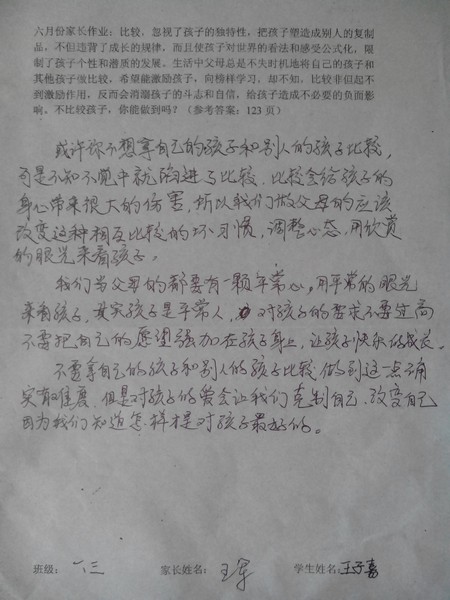 六月份家长作业：比较、忽视了孩子的独特性，把孩子塑造成别人的复制
品，不但违背了成长的规律，而且使孩子对世界的看法和感受公式化，限
制了孩子个性和潜质的发展。生活中父母总是不失时机地将自己的孩子和
其他孩子做比较，希望能激励孩子，向榜样学习，却不知，比较非但起不
到激励作用，反而会消磨孩子的斗志和自信，给孩子造成不必要的负面影
响。不比较孩子，你能做到吗？（参考答案：123页）
或许你不想拿自己的孩子和别人的孩子比较，
可是不知不觉中就陷进了比较．比较会给孩子的
身心带来很大的伤害，所以我们做父母的应该
改变这种相互比较的坏习惯，调整心态，用欣赏
的眼光来看孩子。
我们当父母的都要有一颗平常心，用平常的眼光
来看孩子，其实孩子是平常人，对孩子的要求不要过高
不要把自己的愿望强加在孩子身上，让孩子快乐的成长。
不要拿自己的孩子和别人的孩子比较．做到这一点确
实有难度，但是对孩子的爱会让我们克制自己．改变自己
因为我们知道怎样才是对孩子最好的。
班级：六三 家长姓名：王军 学生姓名：王子嘉